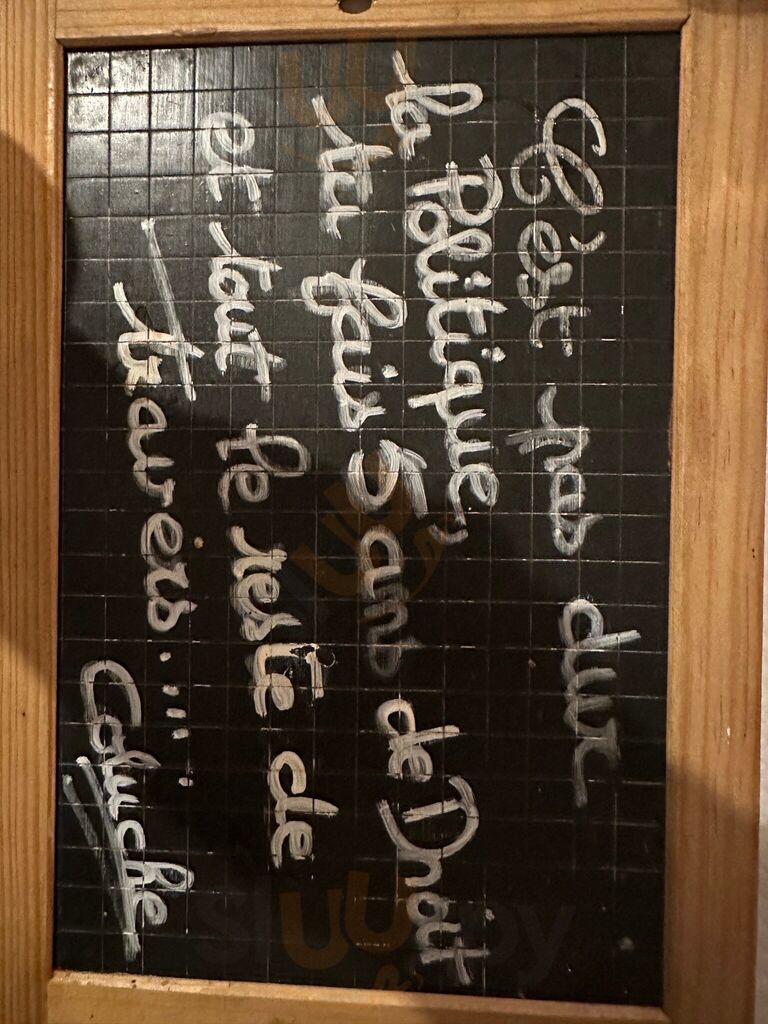 C'est pas dur
la Politique,
tu fais 5 ans de Droit
et tout le reste de
travers.....
Coluche
sluurpy